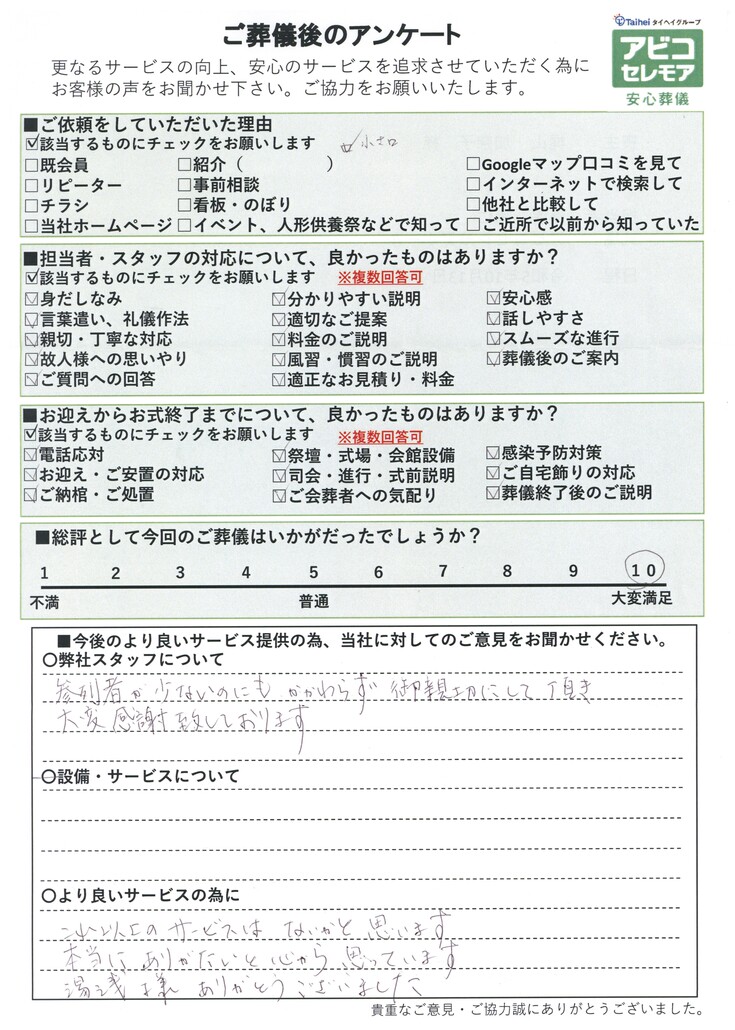 ご葬儀後のアンケート
Taihei タイヘイグループ
アビコ
セレモア
安心葬儀
更なるサービスの向上、安心のサービスを追求させていただく為に
お客様の声をお聞かせ下さい。ご協力をお願いいたします。
■ご依頼をしていただいた理由
☑該当するものにチェックをお願いします
□既会員 □紹介（ ） □Googleマップ口コミを見て
□リピーター □事前相談 □インターネットで検索して
□チラシ □看板・のぼり □他社と比較して
□当社ホームページ □イベント、人形供養祭などで知って □ご近所で以前から知っていた
■担当者・スタッフの対応について、良かったものはありますか？
☑該当するものにチェックをお願いします ※複数回答可
☑身だしなみ ☑分かりやすい説明 ☑安心感
☑言葉遣い、礼儀作法 ☑適切なご提案 ☑話しやすさ
☑親切・丁寧な対応 ☑料金のご説明 ☑スムーズな進行
☑故人様への思いやり ☑風習・慣習のご説明 ☑葬儀後のご案内
☑ご質問への回答 ☑適正なお見積り・料金
■お迎えからお式終了までについて、良かったものはありますか？
☑該当するものにチェックをお願いします ※複数回答可
☑電話応対 ☑祭壇・式場・会館設備 ☑感染予防対策
☑お迎え・ご安置の対応 ☑司会・進行・式前説明 ☑ご自宅飾りの対応
☑ご納棺・ご処置 ☑ご会葬者への気配り ☑葬儀終了後のご説明
■総評として今回のご葬儀はいかがだったでしょうか？
1 2 3 4 5 6 7 8 9 10
不満 普通 大変満足
■今後のより良いサービス提供の為、当社に対してのご意見をお聞かせください。
〇弊社スタッフについて
参列者が少ないのにもかかわらず 御親切にして頂き
大変感謝致しております
〇設備・サービスについて
〇より良いサービスの為に
これ以上のサービスは ないかと思います
本当に ありがたいと心から思っています
湯浅様 ありがとうございました
貴重なご意見・ご協力誠にありがとうございました。